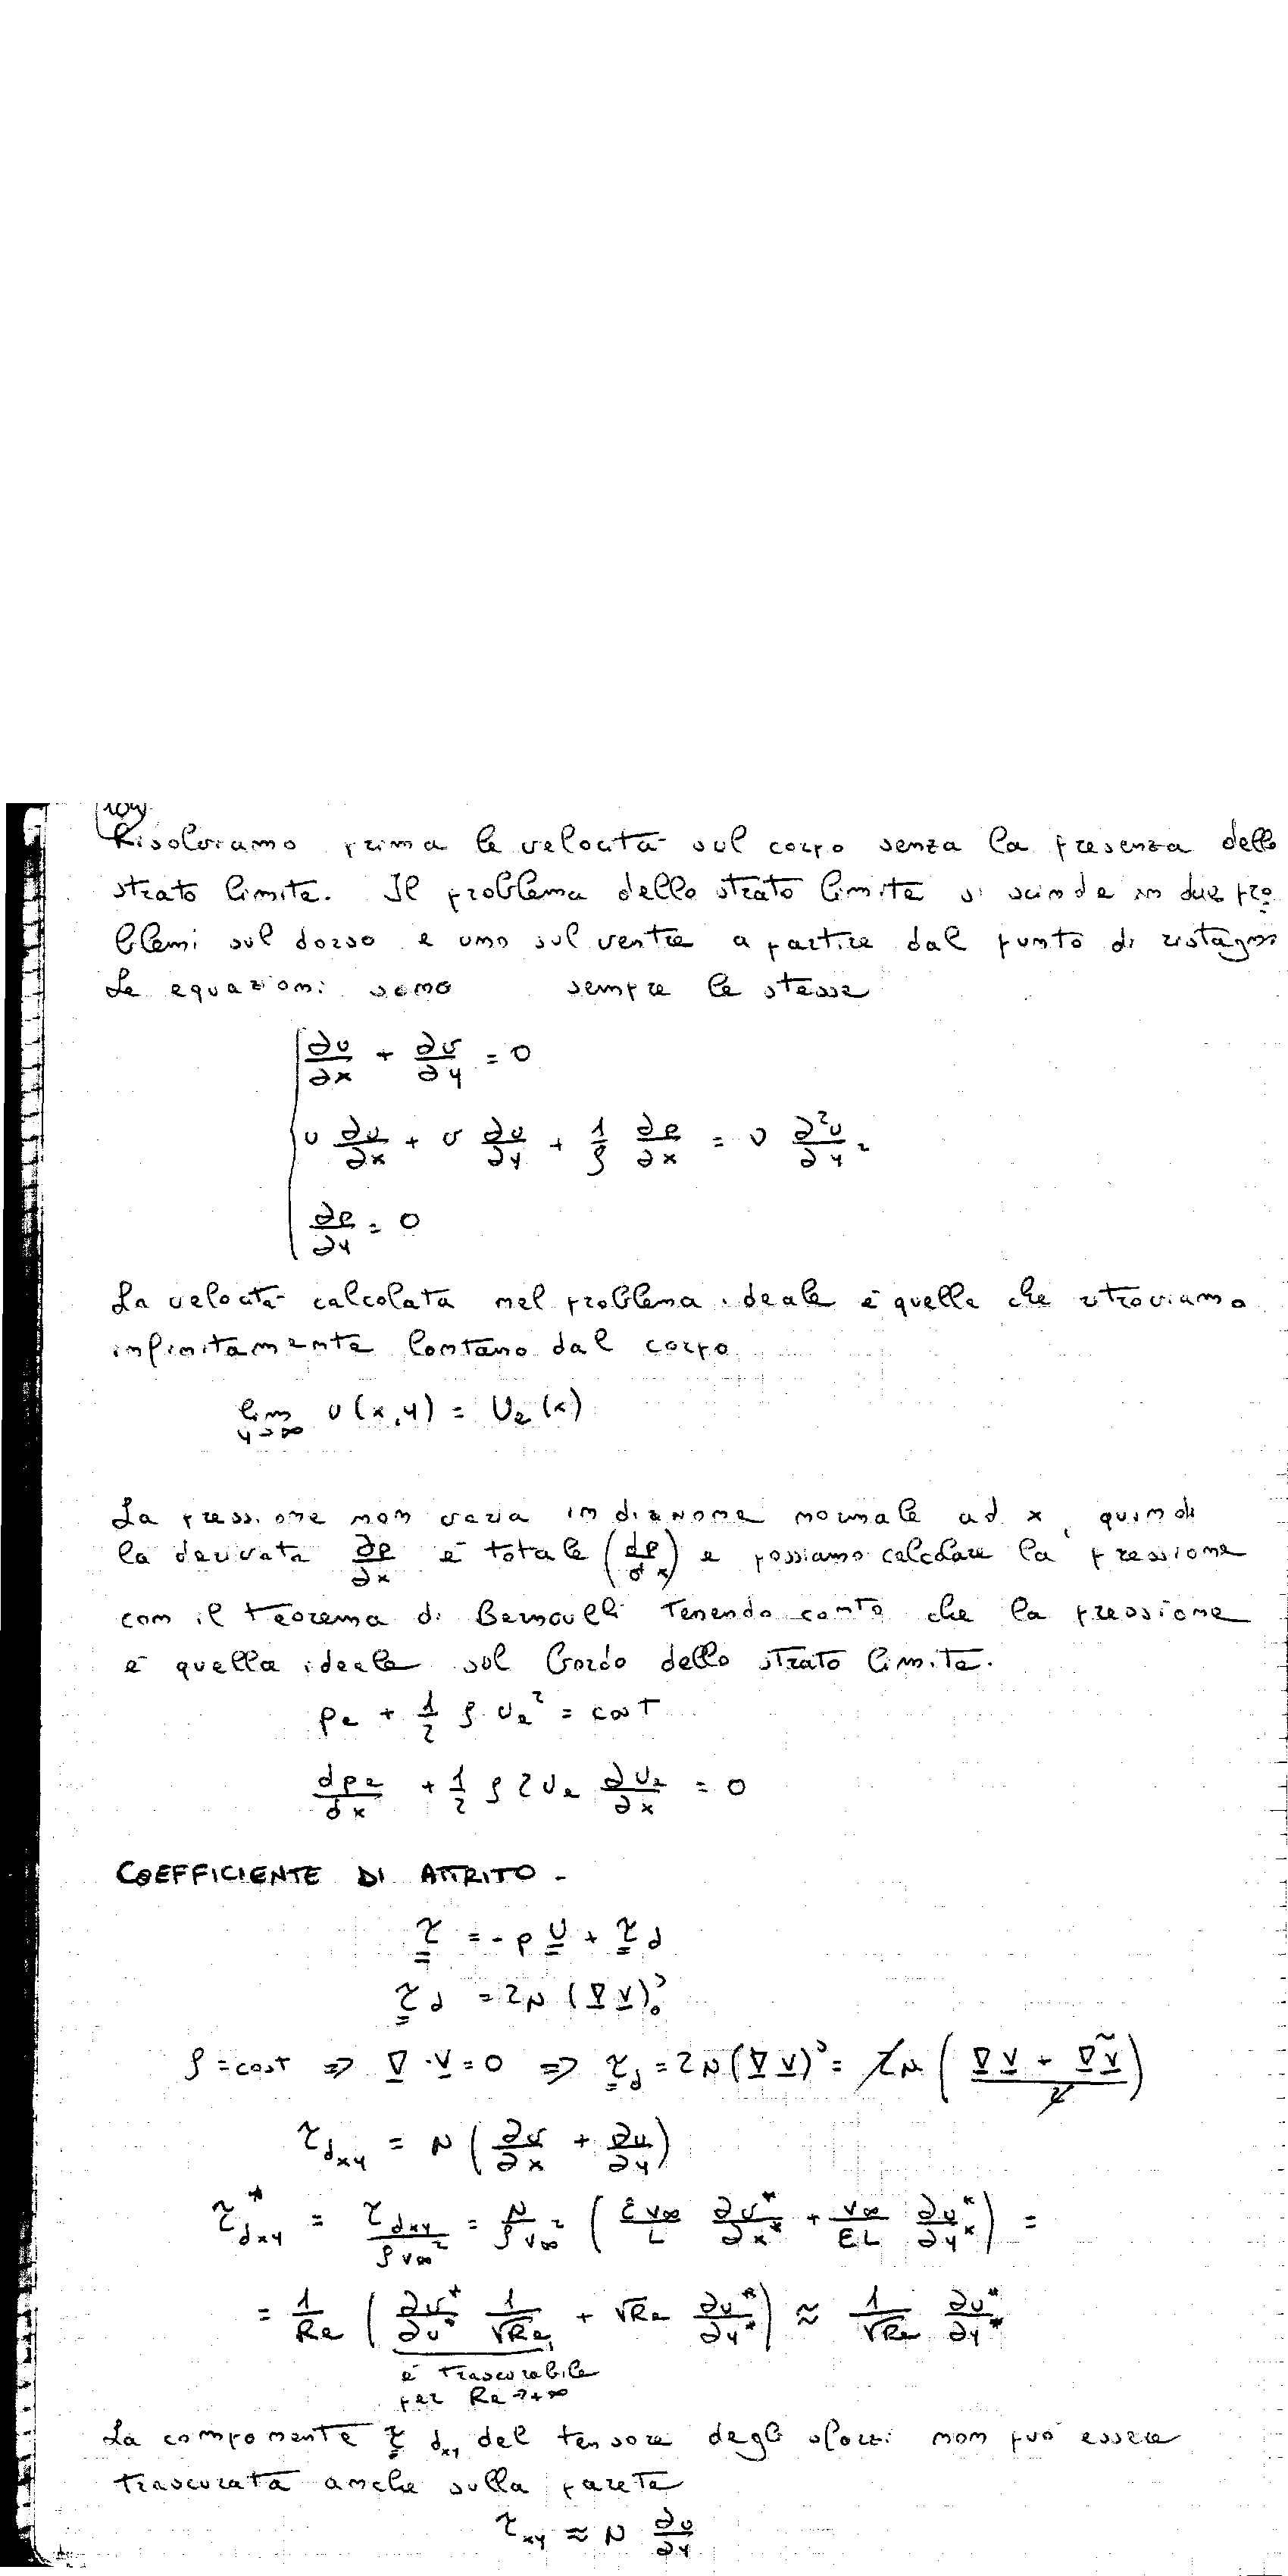 104
Risolviamo prima la velocità sul corpo senza la presenza dello
strato limite. Il problema dello strato limite si scinde in due pro
blemi sul dorso e uno sul ventre a partire dal punto di ristagno
Le equazioni sono sempre le stesse
∂u/∂x + ∂v/∂y = 0
u ∂u/∂x + v ∂u/∂y + 1/ρ ∂p/∂x = ν ∂²u/∂y²
∂p/∂y = 0
La velocità calcolata nel problema ideale è quella che ritroviamo
infinitamente lontano dal corpo
lim y→∞ u(x,y) = Ue(x)
La pressione non varia in direzione normale ad x, quindi
la derivata ∂p/∂x è totale (dp/dx) e possiamo calcolare la pressione
con il teorema di Bernoulli tenendo conto che la pressione
è quella ideale sul bordo dello strato limite.
pe + 1/2 ρ Ue² = cost
dpe/dx + 1/2 ρ 2Ue ∂Ue/∂x = 0
COEFFICIENTE DI ATTRITO -
τ = -p U + τd
τd = 2μ (∇V)₀ˢ
ρ = cost ⇒ ∇·V = 0 ⇒ τd = 2μ(∇V)ˢ = 2μ ( (∇V + ∇Ṽ)/2 )
τdxy = μ (∂v/∂x + ∂u/∂y)
τ*dxy = τdxy/ρV∞² = μ/ρV∞² ( εV∞/L ∂v*/∂x* + V∞/εL ∂u*/∂y* ) =
= 1/Re ( ∂v*/∂u* 1/√Re + √Re ∂u*/∂y* ) ≈ 1/√Re ∂u*/∂y*
è trascurabile
per Re→+∞
La componente τ dxy del tensore degli sforzi non può essere
trascurata anche sulla parete
τxy ≈ μ ∂u/∂y